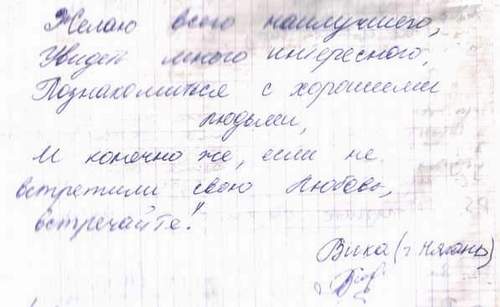 Желаю всего наилучшего,
Увидеть много интересного,
Познакомиться с хорошими
людьми,
И конечно же, если не
встретили свою Любовь,
встречайте!"
Вика (г. Нягань)